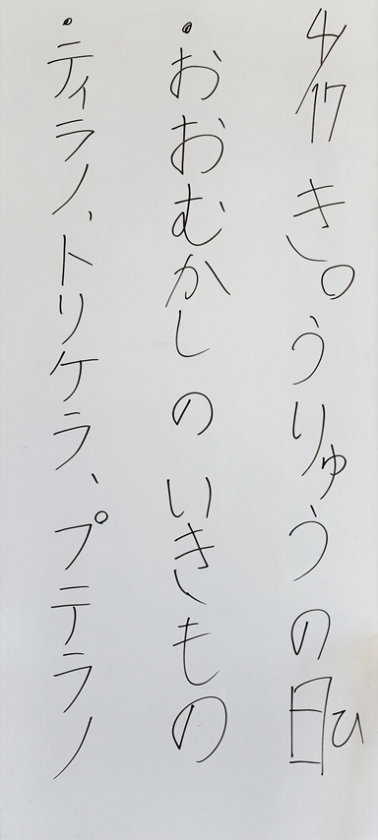 4/17 き。うりゅうの日ひ
・おおむかしのいきもの
・ティラノ、トリケラ、プテラノ